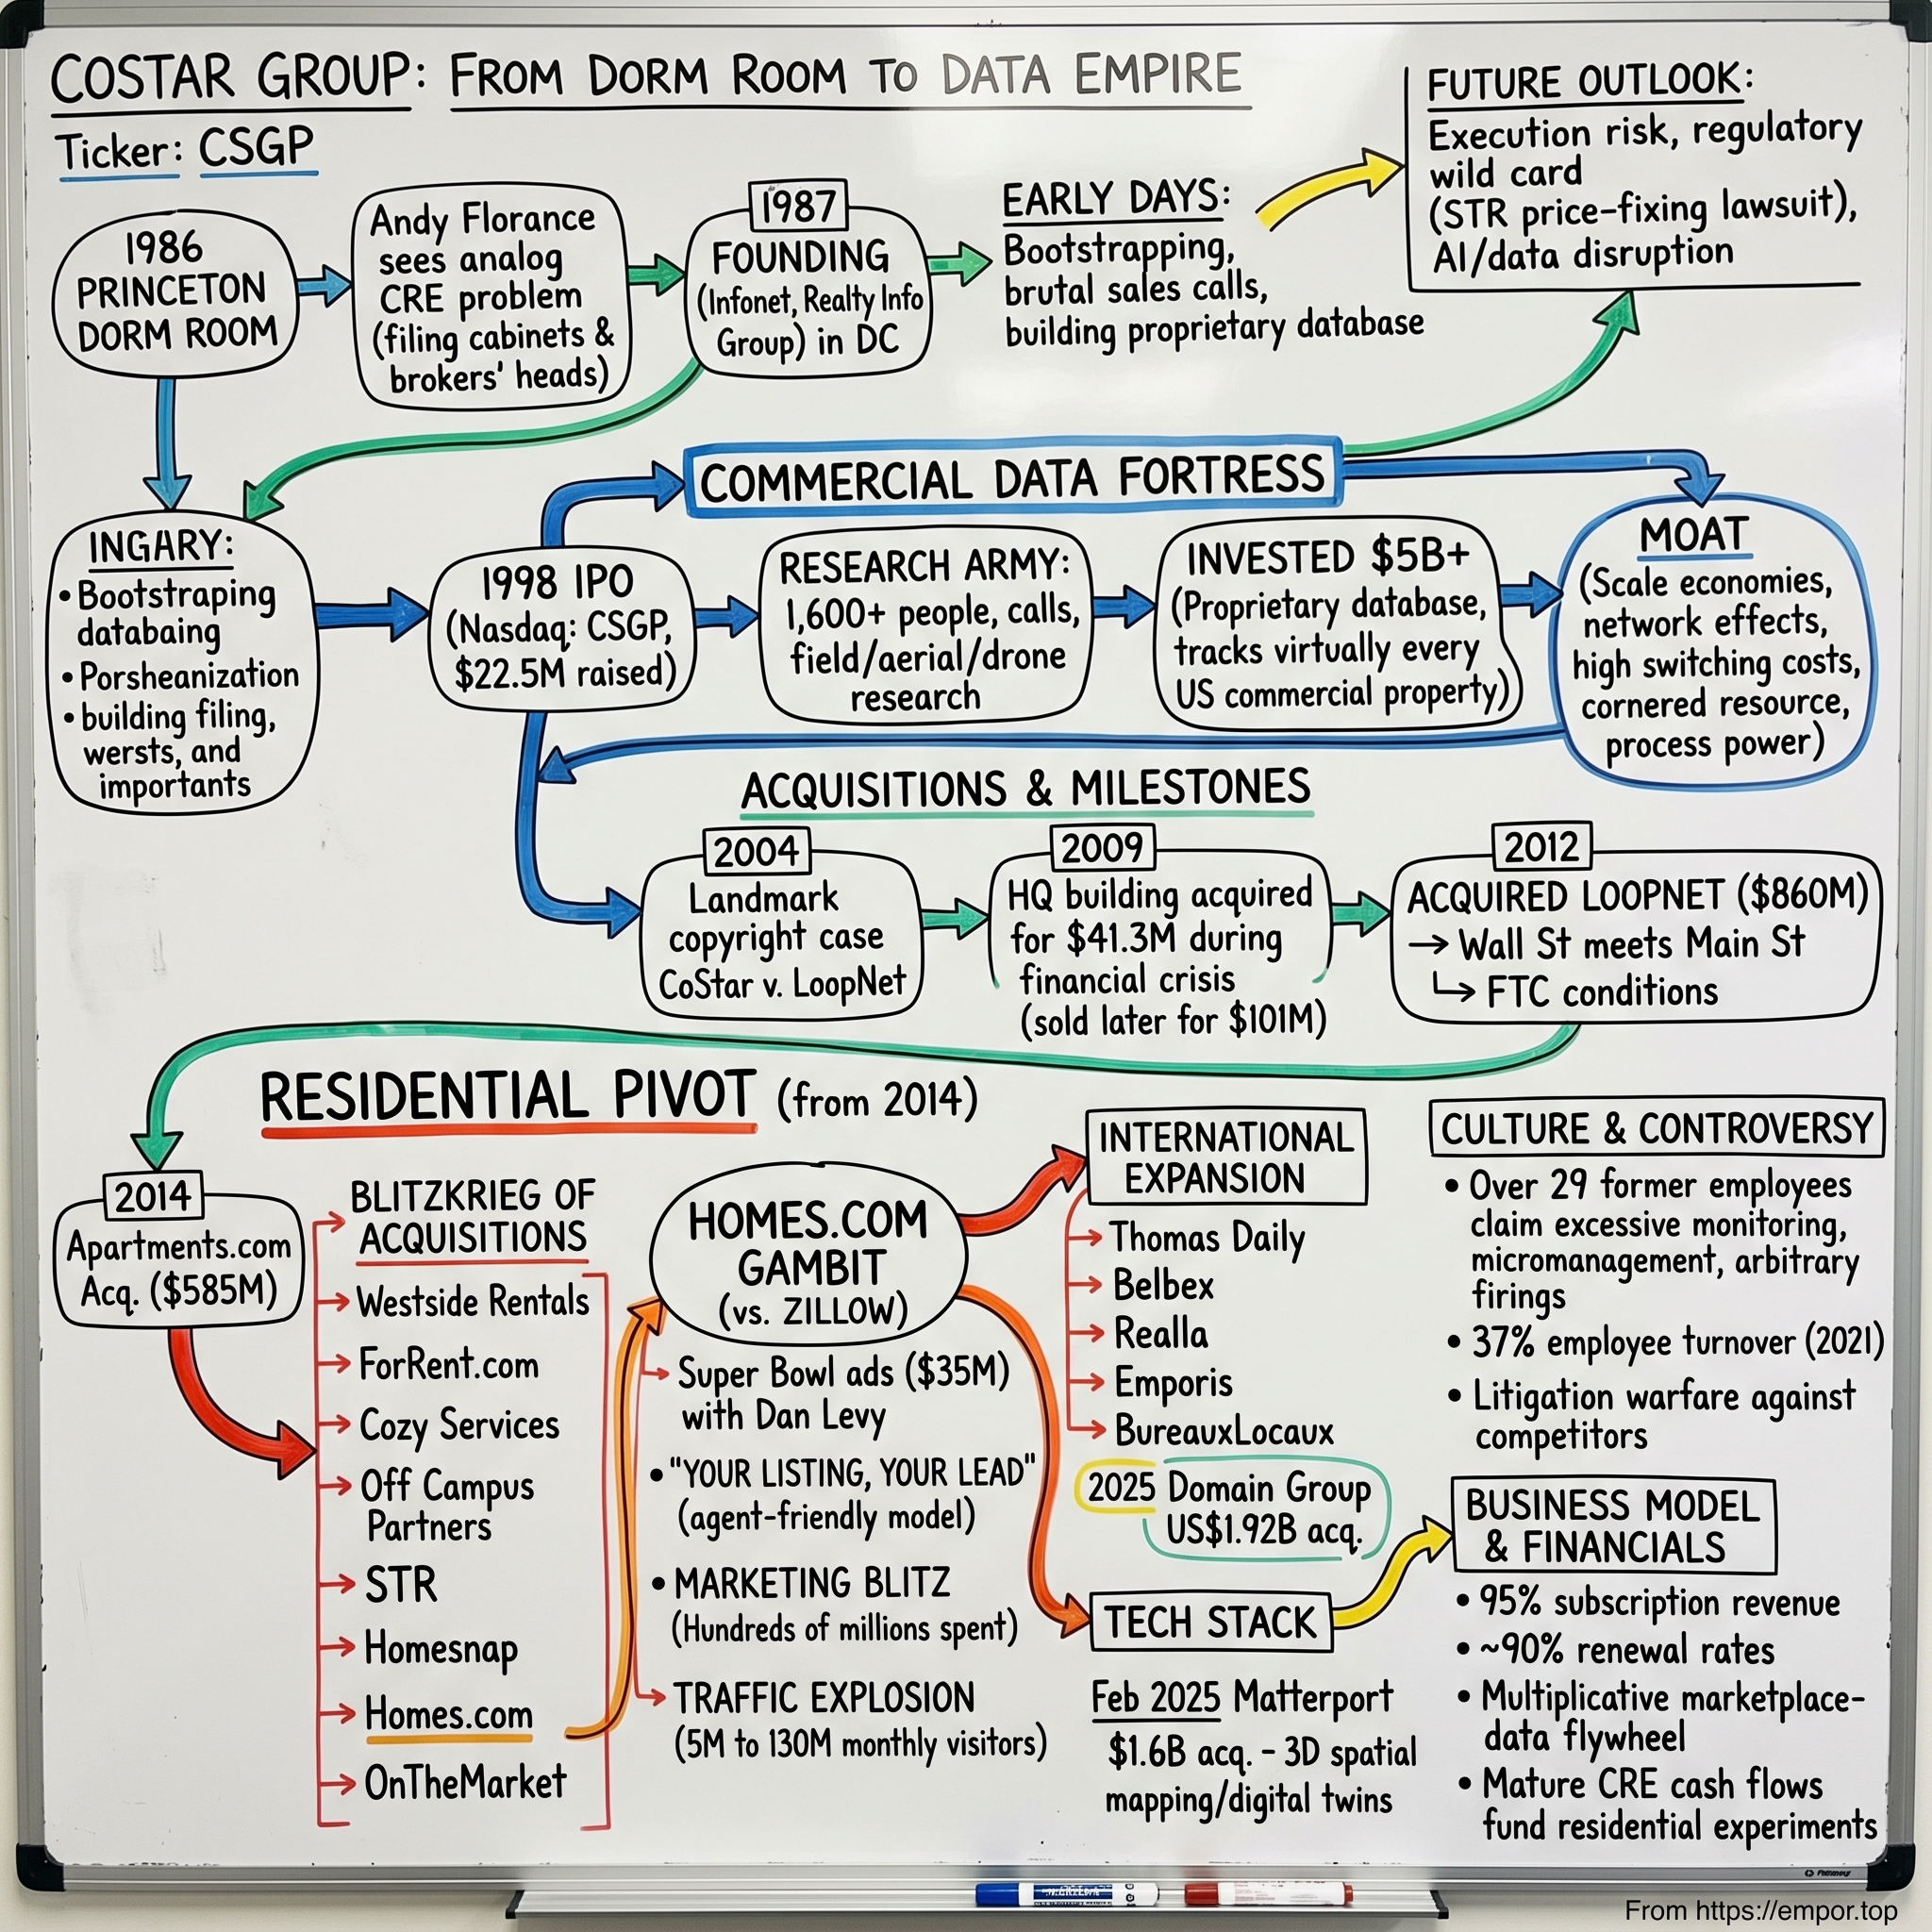 COSTAR GROUP: FROM DORM ROOM TO DATA EMPIRE
Ticker: CSGP
1986
PRINCETON
DORM ROOM
Andy Florance
sees analog
CRE problem
(filing cabinets &
brokers' heads)
1987
FOUNDING
(Infonet, Realty Info
Group) in DC
EARLY DAYS:
Bootstrapping,
brutal sales calls,
building proprietary database
FUTURE OUTLOOK:
Execution risk, regulatory
wild card
(STR price-fixing lawsuit),
AI/data disruption
INGARY:
• Bootstraping
databaing
• Porsheanization
• building filing,
wersts, and
importants
COMMERCIAL DATA FORTRESS
1998 IPO
(Nasdaq: CSGP,
$22.5M raised)
RESEARCH ARMY:
1,600+ people, calls,
field/aerial/drone
research
INVESTED $5B+
(Proprietary database,
tracks virtually every
US commercial property)
MOAT
(Scale economies,
network effects,
high switching costs,
cornered resource,
process power)
ACQUISITIONS & MILESTONES
2004
Landmark
copyright case
CoStar v. LoopNet
2009
HQ building acquired
for $41.3M during
financial crisis
(sold later for $101M)
2012
ACQUIRED LOOPNET ($860M)
→ Wall St meets Main St
↳ FTC conditions
RESIDENTIAL PIVOT (from 2014)
2014
Apartments.com
Acq. ($585M)
BLITZKRIEG OF
ACQUISITIONS
Westside Rentals
ForRent.com
Cozy Services
Off Campus
Partners
STR
Homesnap
Homes.com
OnTheMarket
HOMES.COM
GAMBIT
(vs. ZILLOW)
Super Bowl ads ($35M)
with Dan Levy
• "YOUR LISTING, YOUR LEAD"
(agent-friendly model)
• MARKETING BLITZ
(Hundreds of millions spent)
TRAFFIC EXPLOSION
(5M to 130M monthly visitors)
INTERNATIONAL
EXPANSION
Thomas Daily
Belbex
Realla
Emporis
BureauxLocaux
2025 Domain Group
US$1.92B acq.
TECH STACK
Feb 2025 Matterport
$1.6B acq. - 3D spatial
mapping/digital twins
CULTURE & CONTROVERSY
• Over 29 former employees
claim excessive monitoring,
micromanagement, arbitrary
firings
• 37% employee turnover (2021)
• Litigation warfare against
competitors
BUSINESS MODEL
& FINANCIALS
• 95% subscription revenue
• ~90% renewal rates
• Multiplicative marketplace-
data flywheel
• Mature CRE cash flows
fund residential experiments
From https://empor.top